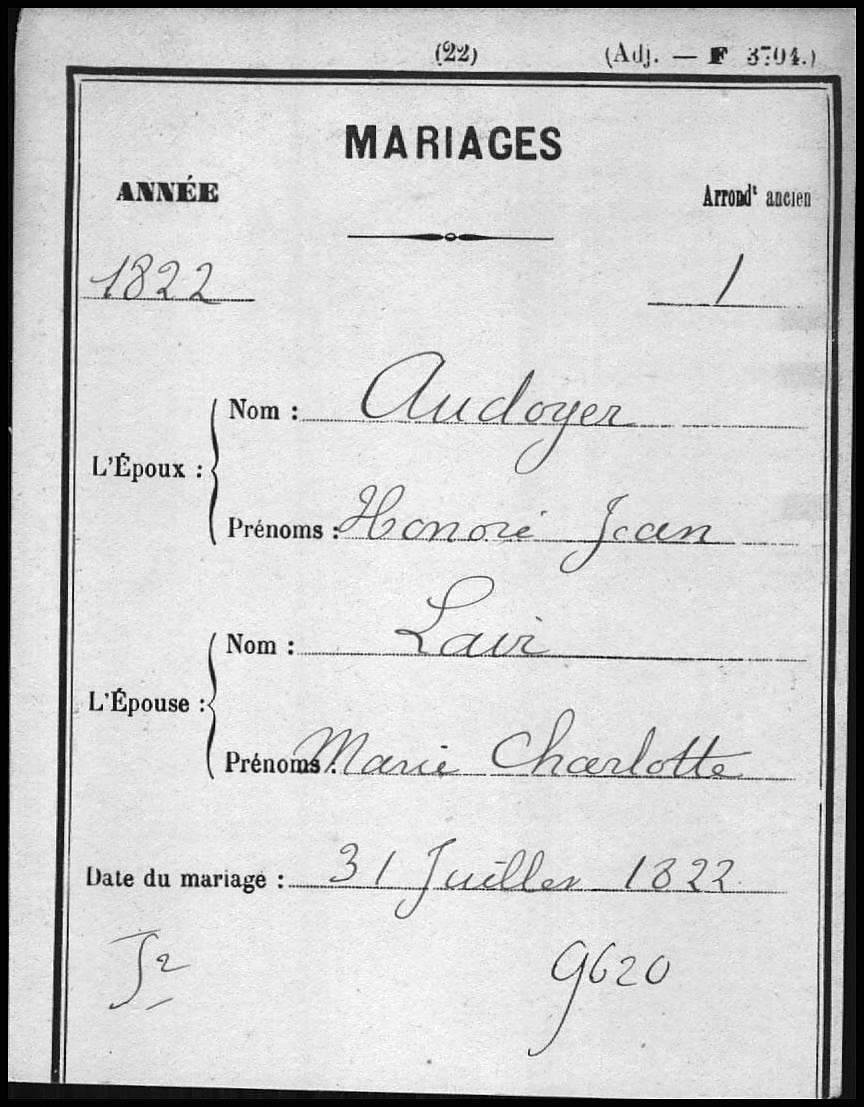 (22) (Adj. — F 3704.)
MARIAGES
ANNÉE Arrondt ancien
1822 1
L'Époux :
Nom : Audoyer
Prénoms : Honoré Jean
L'Épouse :
Nom : Lavi
Prénoms : Marie Charlotte
Date du mariage : 31 Juillet 1822
9620